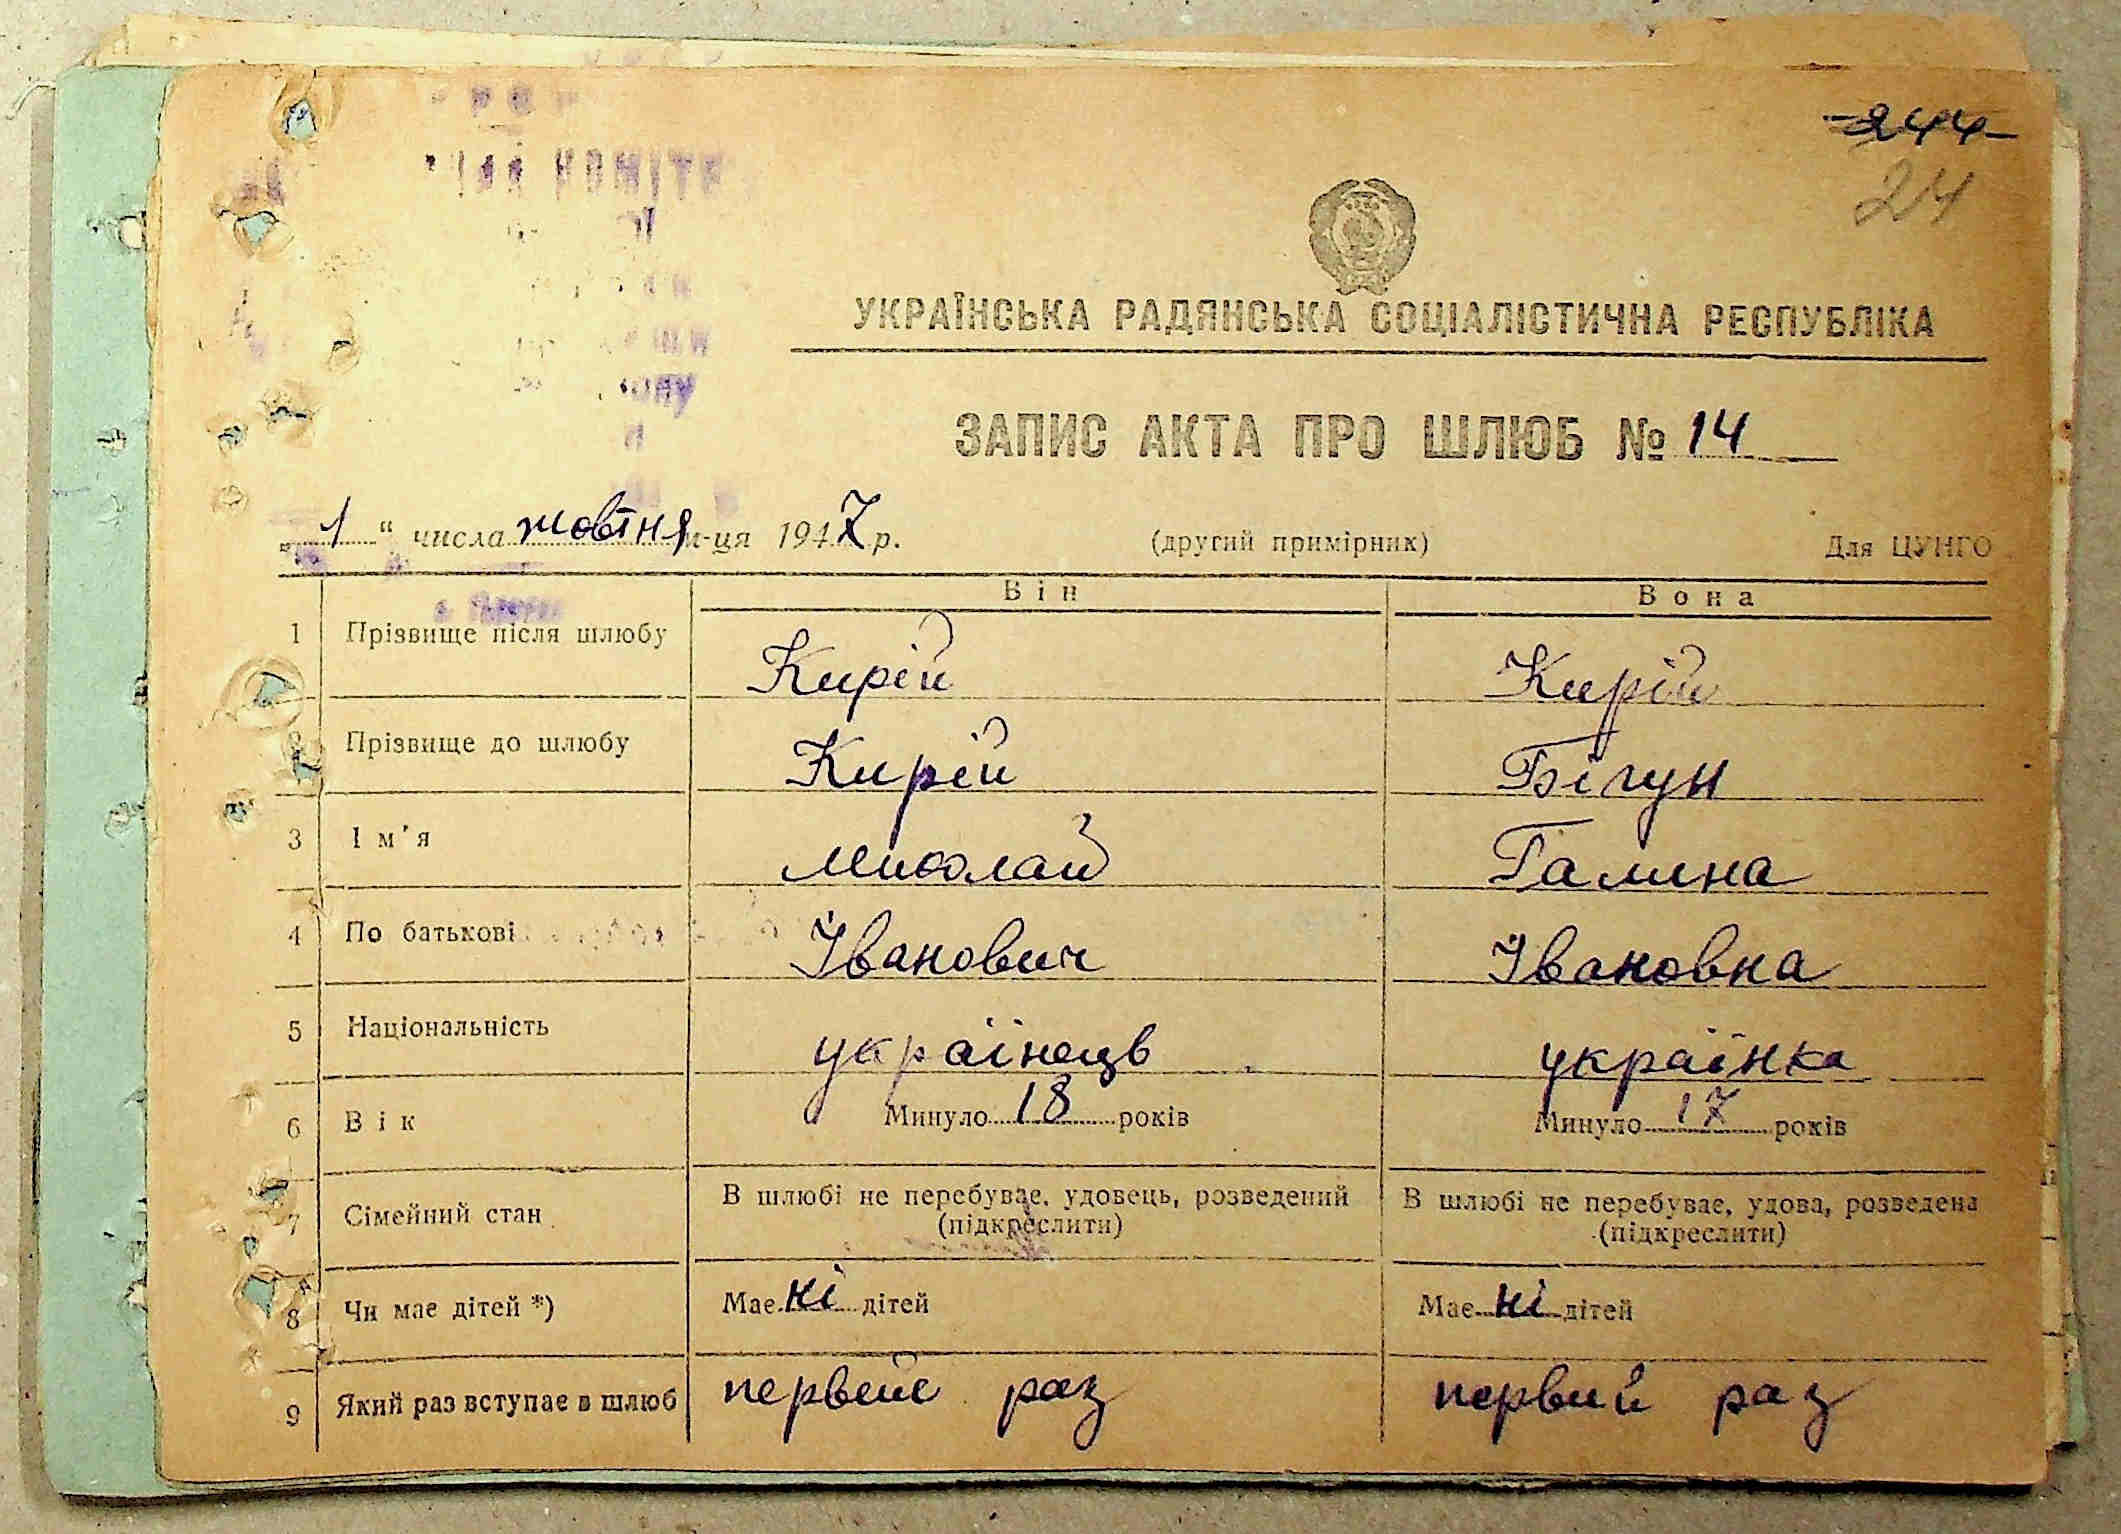 244
24
УКРАЇНСЬКА РАДЯНСЬКА СОЦІАЛІСТИЧНА РЕСПУБЛІКА
ЗАПИС АКТА ПРО ШЛЮБ № 14
„1“ числа жовтня м-ця 1947 р. (другий примірник) Для ЦУНГО
Він Вона
1 Прізвище після шлюбу Кирій Кирій
2 Прізвище до шлюбу Кирій Бігун
3 Ім'я Миколай Галина
4 По батькові Іванович Івановна
5 Національність українець українка
6 Вік Минуло 18 років Минуло 17 років
7 Сімейний стан В шлюбі не перебуває, удовець, розведений (підкреслити) В шлюбі не перебуває, удова, розведена (підкреслити)
8 Чи має дітей *) Має ні дітей Має ні дітей
9 Який раз вступає в шлюб первий раз первий раз